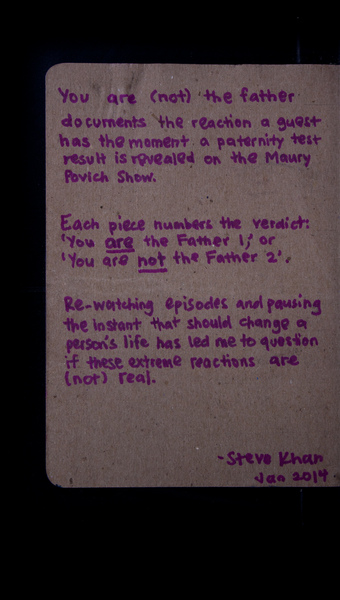 You are (not) the father
documents the reaction a guest
has the moment a paternity test
result is revealed on the Maury
Povich Show.
Each piece numbers the verdict:
'You are the Father 1,' or
'You are not the Father 2'.
Re-watching episodes and pausing
the instant that should change a
person's life has led me to question
if these extreme reactions are
(not) real.
-Steve Khan
Jan 2014